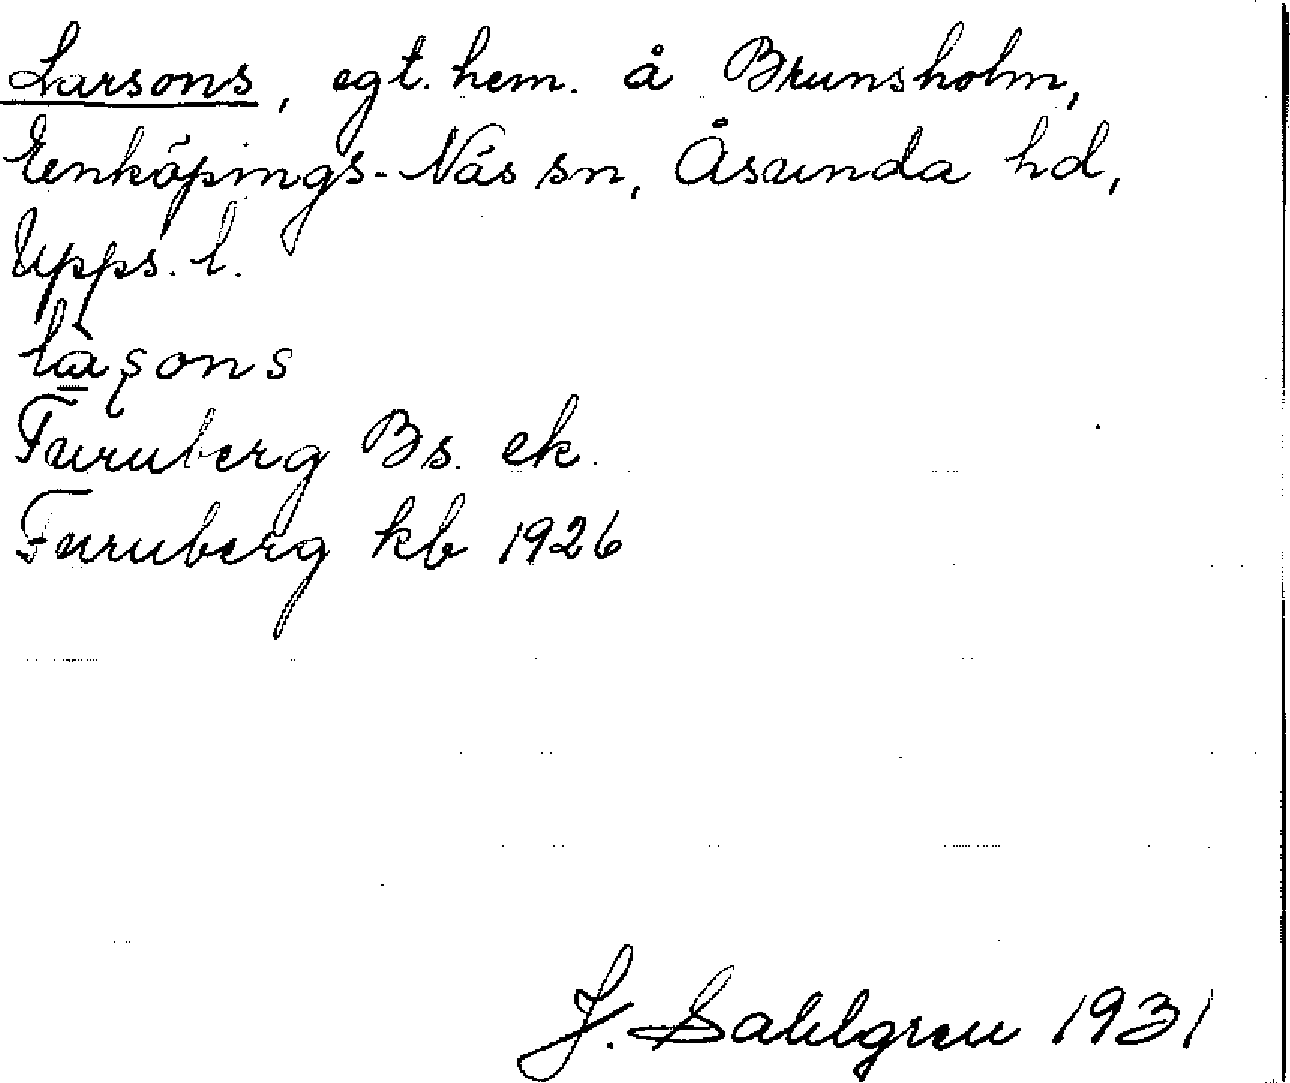 Larsons, egt. hem. å Brunsholm,
Enköpings-Näs sn, Åsunda hd,
Upps. l.
làşons
Furuberg Bs. ek.
Furuberg kb 1926
J. Sahlgren 1931